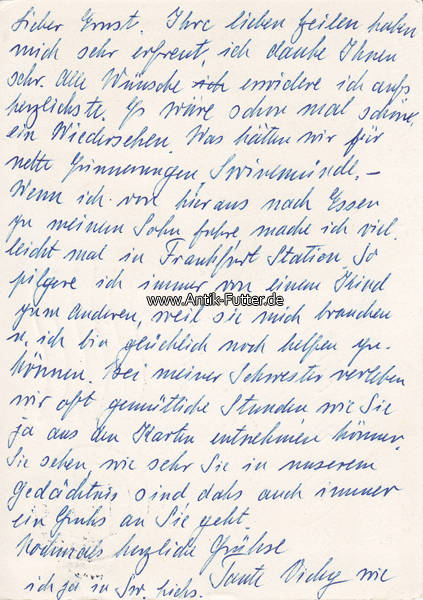 Lieber Ernst. Ihre lieben Zeilen haben
mich sehr erfreut, ich danke Ihnen
sehr. Alle Wünsche ich erwidere ich aufs
herzlichste. Es wäre schon mal schön,
ein Wiedersehen. Was hätten wir für
nette Erinnerungen Swinemünde. –
Wenn ich von hier aus nach Essen
zu meinem Sohn fahre mache ich viel-
leicht mal in Frankfurt Station. So
pilgere ich immer von einem Kind
www.Antik-Futter.de
zum anderen, weil sie mich brauchen
u. ich bin glücklich noch helfen zu
können. Bei meiner Schwester verleben
wir oft gemütliche Stunden wie Sie
ja aus den Karten entnehmen können.
Sie sehen, wie sehr Sie in unserem
Gedächtnis sind dahs auch immer
ein Gruhs an Sie geht.
Nochmals herzliche Grühse
Tante Vicky wie
ich ja in Sw. hiehs.